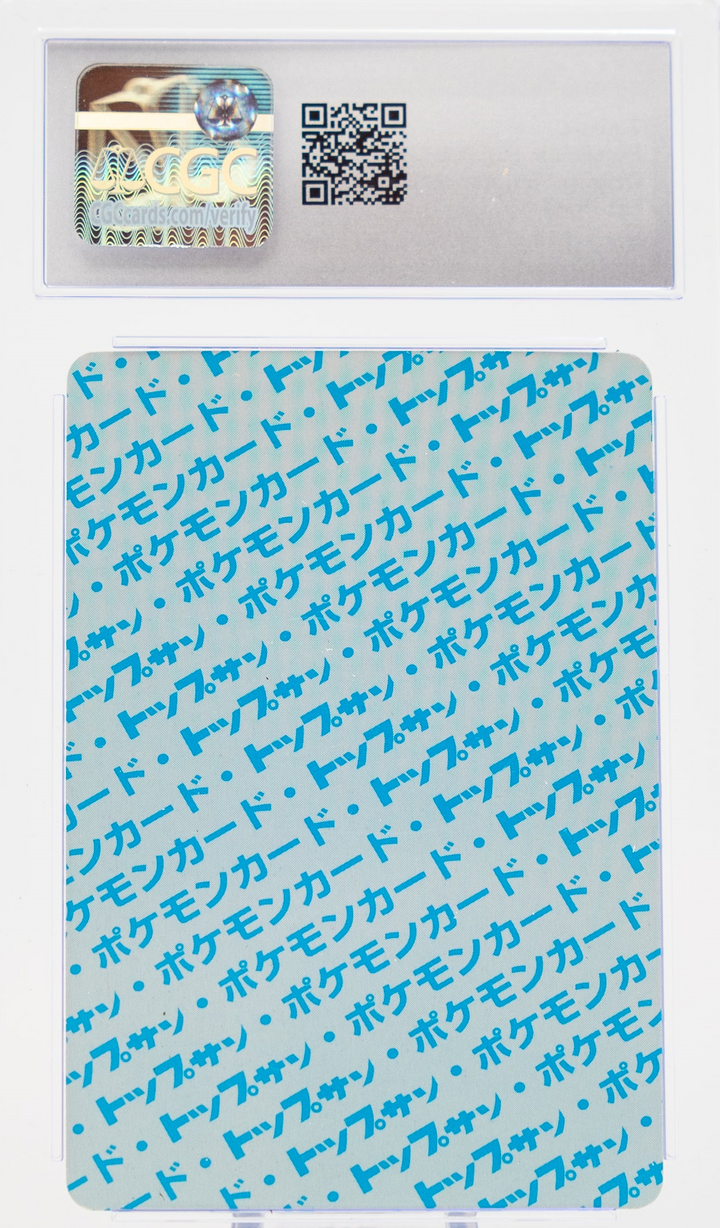 CGC
CGCcards.com/verify
ド・
カード・ト
モンカード・トップ
ポケモンカード・トップサ
・ポケモンカード・トップサン
ン・ポケモンカード・トップサン
プサン・ポケモンカード・トップサ
トップサン・ポケモンカード・トップ
ド・トップサン・ポケモンカード・ト
ード・トップサン・ポケモンカード・
カード・トップサン・ポケモンカード
ンカード・トップサン・ポケモンカ
ケモンカード・トップサン・ポケモ
・ポケモンカード・トップサン・ポ
サン・ポケモンカード・トップサン
トップサン・ポケモンカード・トップ
・トップサン・ポケモンカード・ト
ド・トップサン・ポケモンカード
ード・トップサン・ポケモンカー
ド・トップサン・ポケモン
・トップサン・ポケ
トップサン・ポ
トップサン・
プサ